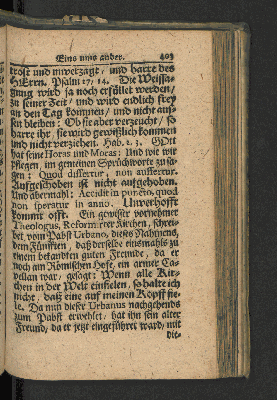 Eins ums ander. 403
trost und unverzagt / und harre des
HErrn. Psalm 27, 14. Die Weissa-
gung wird ja noch erfüllet werden /
zu seiner Zeit / und wird endlich frey
an den Tag kommen / und nicht aus-
sen bleiben: Ob sie aber verzeucht / so
harre ihr, sie wird gewißlich kommen
und nicht verziehen. Hab. 2. 3. GOtt
hat seine Horas und Moras: Und wie wir
pflegen, im gemeinen Sprichworte zu sa-
gen: Quod differtur, non auffertur.
Aufgeschoben ist nicht aufgehoben.
Und abermahl: Accidit in puncto, quod
non speratur in anno. Unverhofft
kommt offt. Ein gewisser vornehmer
Theologus, Reformirter Kirchen, schrei-
bet vom Pabst Urbano, dieses Nahmens,
dem Fünfften, daß derselbe einesmahls zu
einem bekandten guten Freunde, da er
noch am Römischen Hofe, ein armer Ca-
pellan war, gesagt: Wenn alle Kir-
chen in der Welt einfielen, so halte ich
nicht, daß eine auf meinen Kopff fie-
le. Da nun dieser Urbanus nachgehends
zum Pabst erwehlet, hat ihn sein alter
Freund, da er jetzt eingeführet ward, mit
die-